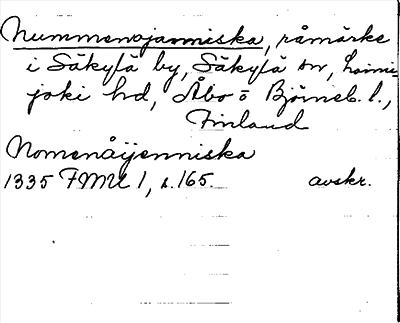 Nummenojanniska, råmärke
i Säkylä by, Säkylä sn, Loimi-
joki hd, Åbo o Björneb. l.,
Finland
Nomenåijenniska
1335 FMU 1, s. 165. avskr.